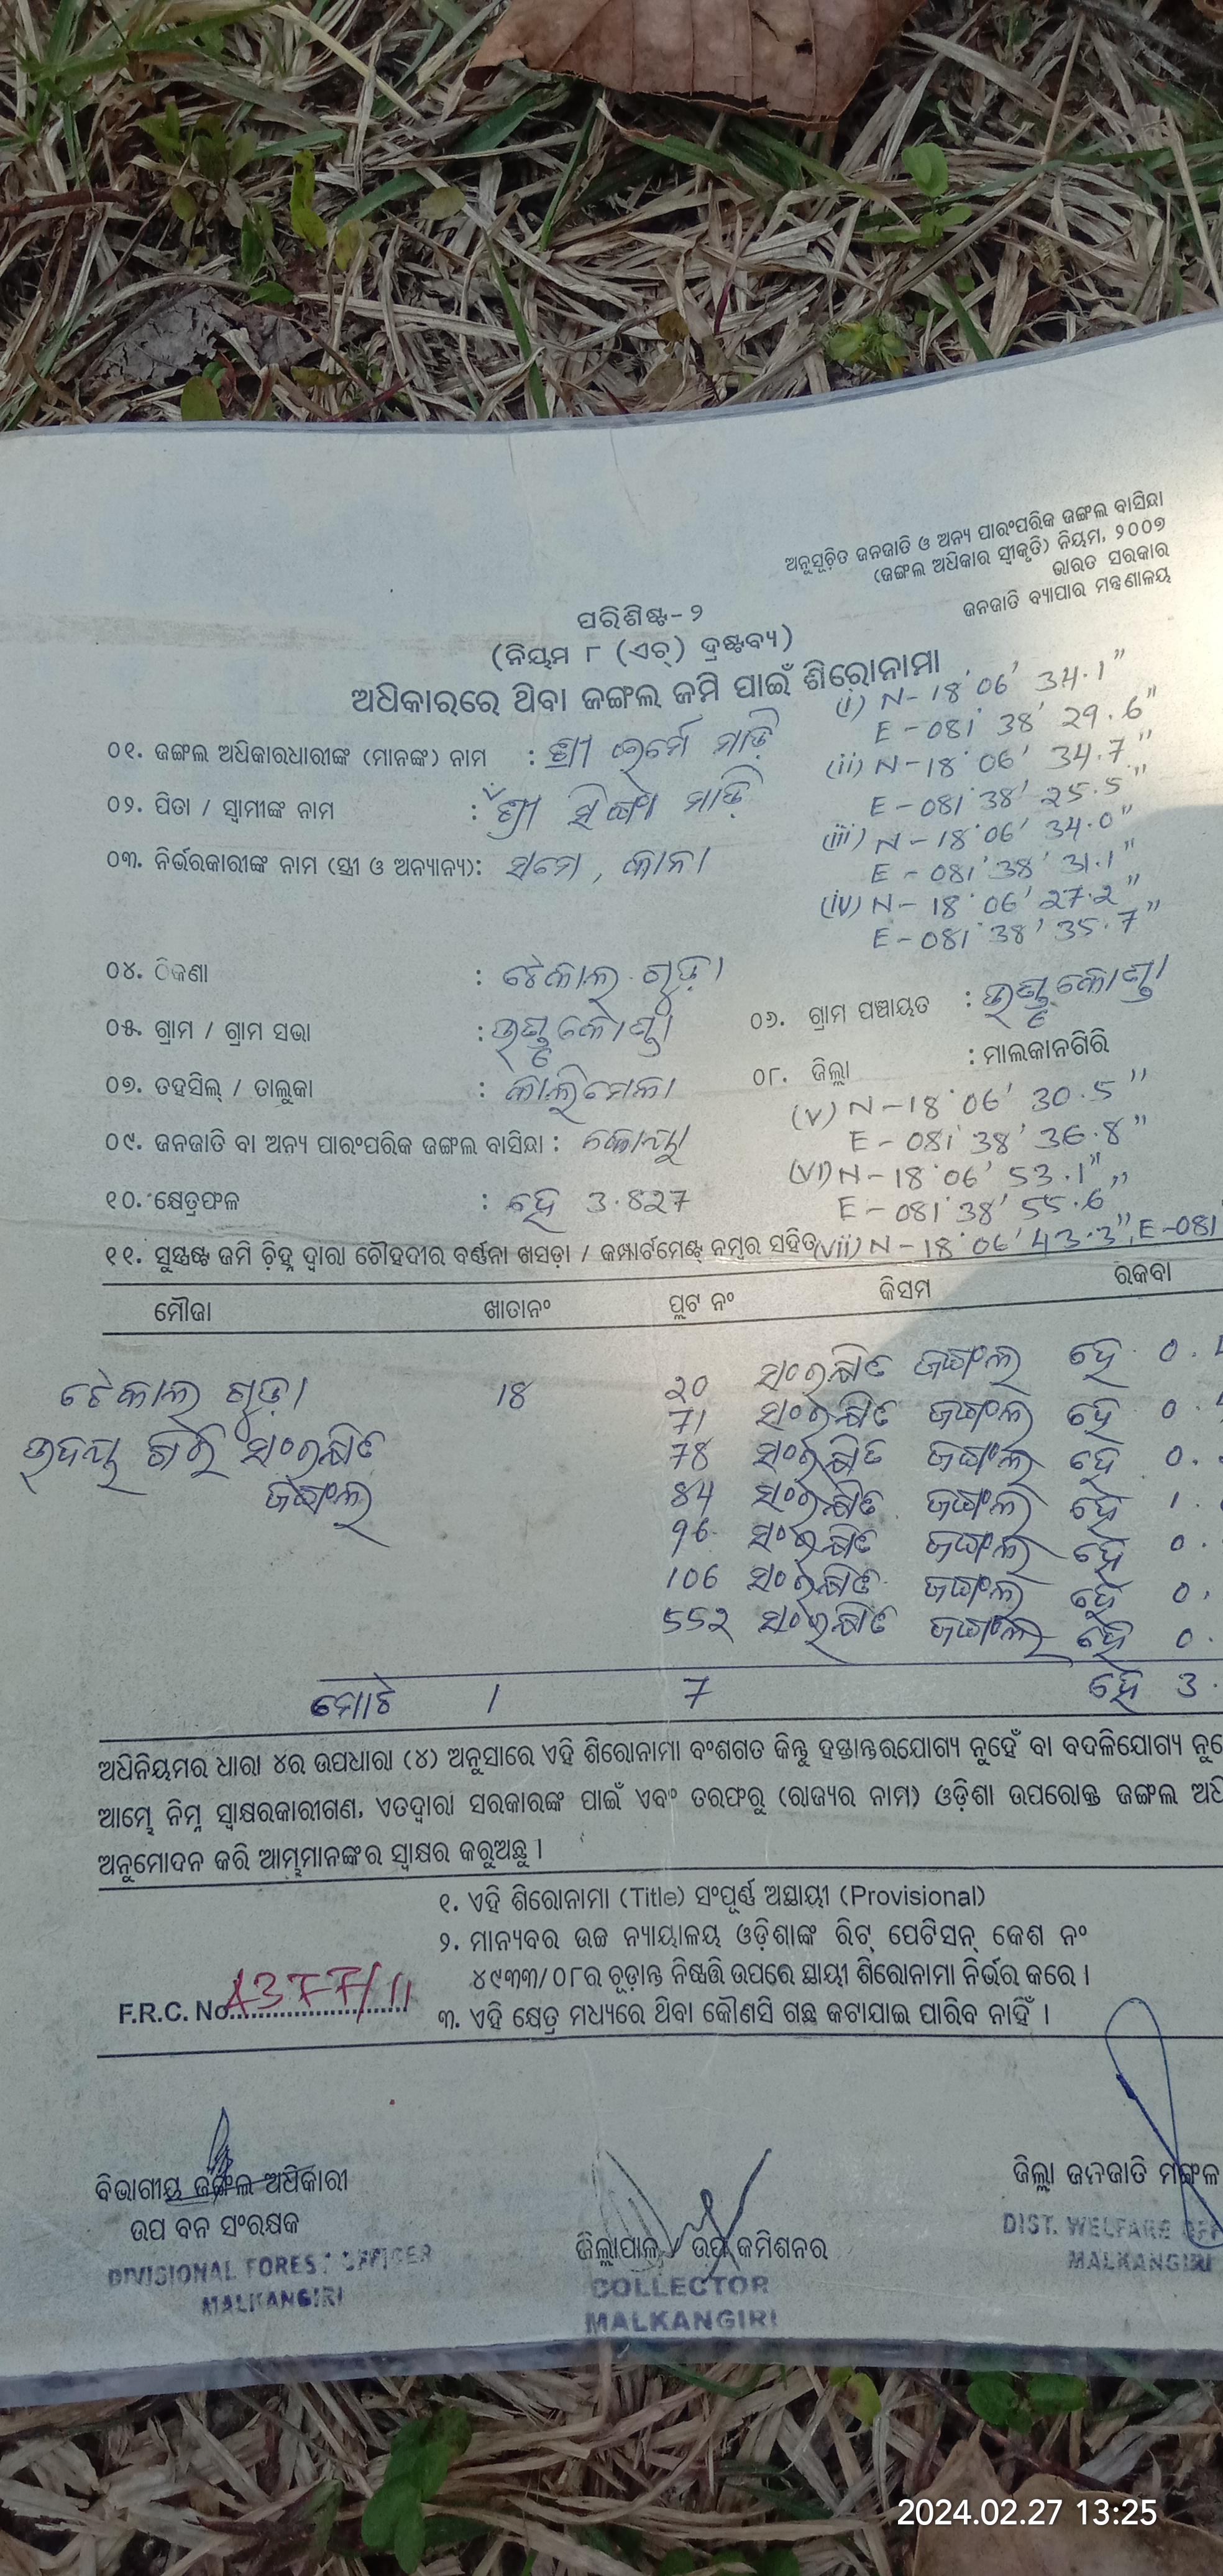 ଅନୁସୂଚିତ ଜନଜାତି ଓ ଅନ୍ୟ ପାରଂପରିକ ଜଙ୍ଗଲ ବାସିନ୍ଦା
(ଜଙ୍ଗଲ ଅଧିକାର ସ୍ୱୀକୃତି) ନିୟମ, ୨୦୦୭
ଭାରତ ସରକାର
ଜନଜାତି ବ୍ୟାପାର ମନ୍ତ୍ରଣାଳୟ
ପରିଶିଷ୍ଟ-୨
(ନିୟମ ୮ (ଏଚ୍) ଦ୍ରଷ୍ଟବ୍ୟ)
ଅଧିକାରରେ ଥିବା ଜଙ୍ଗଲ ଜମି ପାଇଁ ଶିରୋନାମା
(i) N-18°06' 34.1"
E-081°38' 29.6"
୦୧. ଜଙ୍ଗଲ ଅଧିକାରଧାରୀଙ୍କ (ମାନଙ୍କ) ନାମ : ଶ୍ରୀ ମାଡ଼ି
(ii) N-18°06' 34.7"
E-081°38' 25.5"
୦୨. ପିତା / ସ୍ୱାମୀଙ୍କ ନାମ : ଶ୍ରୀ ମାଡ଼ି
(iii) N-18°06' 34.0"
E-081°38' 31.1"
୦୩. ନିର୍ଭରକାରୀଙ୍କ ନାମ (ସ୍ତ୍ରୀ ଓ ଅନ୍ୟାନ୍ୟ):
(iv) N-18°06' 27.2"
E-081°38' 35.7"
୦୪. ଠିକଣା : ଟେକାଲ ଗୁଡ଼ା
୦୫. ଗ୍ରାମ / ଗ୍ରାମ ସଭା :
୦୬. ଗ୍ରାମ ପଞ୍ଚାୟତ :
୦୭. ତହସିଲ୍ / ତାଲୁକା : କାଲିମେଳା
୦୮. ଜିଲ୍ଲା : ମାଲକାନଗିରି
(v) N-18°06' 30.5"
E-081°38' 36.8"
୦୯. ଜନଜାତି ବା ଅନ୍ୟ ପାରଂପରିକ ଜଙ୍ଗଲ ବାସିନ୍ଦା : କୋୟା
(vi) N-18°06' 53.1"
E-081°38' 55.6"
୧୦. କ୍ଷେତ୍ରଫଳ : ହେ 3.827
୧୧. ସୁସ୍ପଷ୍ଟ ଜମି ଚିହ୍ନ ଦ୍ୱାରା ଚୌହଦୀର ବର୍ଣ୍ଣନା ଖସଡ଼ା / କମ୍ପାର୍ଟମେଣ୍ଟ୍ ନମ୍ବର ସହିତ
(vii) N-18°06' 43.3", E-081
ମୌଜା ଖାତାନଂ ପ୍ଲଟ ନଂ କିସମ ରକବା
ଟେକାଲ ଗୁଡ଼ା 18 20 ସଂରକ୍ଷିତ ଜଙ୍ଗଲ ହେ 0.
ଉଦୟ ଗିରି ସଂରକ୍ଷିତ 71 ସଂରକ୍ଷିତ ଜଙ୍ଗଲ ହେ 0.
ଜଙ୍ଗଲ 78 ସଂରକ୍ଷିତ ଜଙ୍ଗଲ ହେ 0.
84 ସଂରକ୍ଷିତ ଜଙ୍ଗଲ ହେ 1.
96 ସଂରକ୍ଷିତ ଜଙ୍ଗଲ ହେ 0.
106 ସଂରକ୍ଷିତ ଜଙ୍ଗଲ ହେ 0.
552 ସଂରକ୍ଷିତ ଜଙ୍ଗଲ ହେ 0.
ମୋଟ 1 7 ହେ 3.
ଅଧିନିୟମର ଧାରା ୪ର ଉପଧାରା (୪) ଅନୁସାରେ ଏହି ଶିରୋନାମା ବଂଶଗତ କିନ୍ତୁ ହସ୍ତାନ୍ତରଯୋଗ୍ୟ ନୁହେଁ ବା ବଦଳିଯୋଗ୍ୟ
ଆମ୍ଭେ ନିମ୍ନ ସ୍ୱାକ୍ଷରକାରୀଗଣ, ଏତଦ୍ୱାରା ସରକାରଙ୍କ ପାଇଁ ଏବଂ ତରଫରୁ (ରାଜ୍ୟର ନାମ) ଓଡ଼ିଶା ଉପରୋକ୍ତ ଜଙ୍ଗଲ
ଅନୁମୋଦନ କରି ଆମ୍ଭମାନଙ୍କର ସ୍ୱାକ୍ଷର କରୁଅଛୁ ।
୧. ଏହି ଶିରୋନାମା (Title) ସଂପୂର୍ଣ୍ଣ ଅସ୍ଥାୟୀ (Provisional)
୨. ମାନ୍ୟବର ଉଚ୍ଚ ନ୍ୟାୟାଳୟ ଓଡ଼ିଶାଙ୍କ ରିଟ୍ ପେଟିସନ୍ କେଶ ନଂ
୪୯୩୩/୦୮ର ଚୂଡ଼ାନ୍ତ ନିଷ୍ପତ୍ତି ଉପରେ ସ୍ଥାୟୀ ଶିରୋନାମା ନିର୍ଭର କରେ ।
F.R.C. No
୩. ଏହି କ୍ଷେତ୍ର ମଧ୍ୟରେ ଥିବା କୌଣସି ଗଛ କଟାଯାଇ ପାରିବ ନାହିଁ ।
ବିଭାଗୀୟ ଜଙ୍ଗଲ ଅଧିକାରୀ
ଉପ ବନ ସଂରକ୍ଷକ
DIVISIONAL FOREST OFFICER
MALKANGIRI
ଜିଲ୍ଲାପାଳ ଉପ କମିଶନର
COLLECTOR
MALKANGIRI
ଜିଲ୍ଲା ଜନଜାତି ମଙ୍ଗଳ
DIST. WELFARE OFF
MALKANGIRI
2024.02.27 13:25